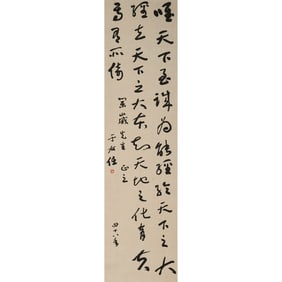 唯天下至誠為能經綸天下之大
經立天下之大本知天地之化育夫
焉有所倚
先生正之
于右任
四十八年